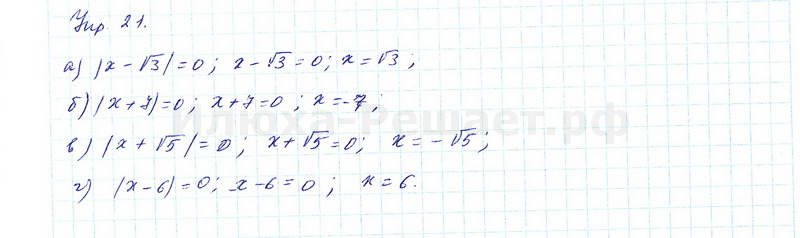 Упр. 21.
а) |x - √3| = 0; x - √3 = 0; x = √3;
б) |x + 7| = 0; x + 7 = 0; x = -7;
Илюха-Решает.рф
в) |x + √5| = 0; x + √5 = 0; x = -√5;
г) |x - 6| = 0; x - 6 = 0; x = 6.